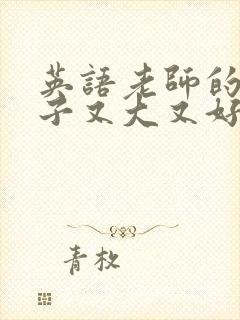 英語老師的
子又大又好
青杕